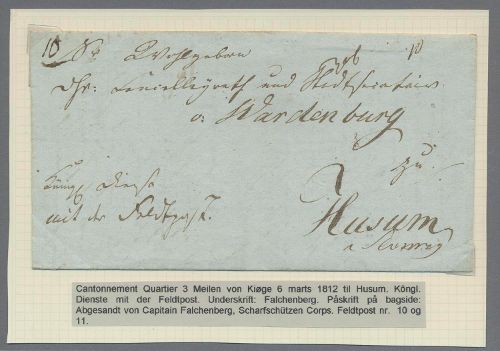 10 Sr Wohlgeborn
10
und
v: Wardenburg
zu.
Husum
Königl. Dienst
mit der Feldtpost.
Cantonnement Quartier 3 Meilen von Kiøge 6 marts 1812 til Husum. Köngl.
Dienste mit der Feltpost. Underskrift: Falchenberg. Påskrift på bagside:
Abgesandt von Capitain Falchenberg, Scharfschützen Corps. Feldtpost nr. 10 og
11.